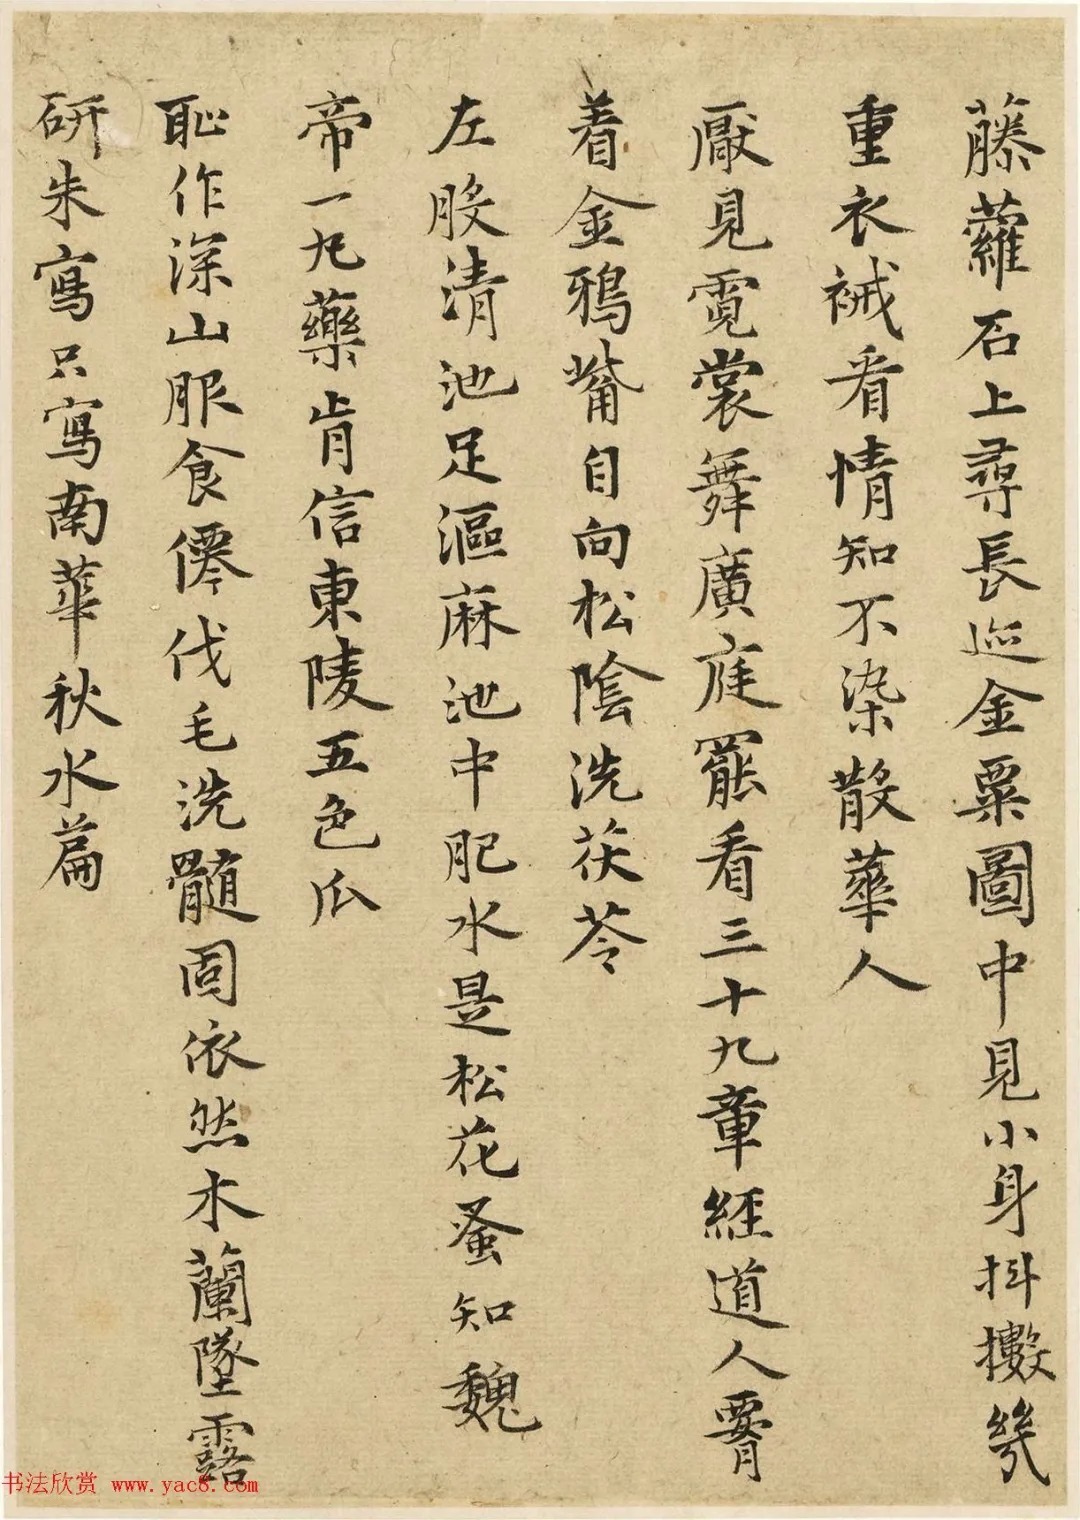 藤蘿石上尋長巡金粟圖中見小身抖擻幾
重衣裓看情知不染散華人
厭見霓裳舞廣庭罷看三十九章經道人要
着金鴉觜自向松陰洗茯苓
左股清池足漚麻池中肥水是松花蚤知魏
帝一丸藥肯信東陵五色瓜
恥作深山服食僊伐毛洗髓固依然木蘭墜露
研朱寫只寫南華秋水篇
书法欣赏 www.yac8.com